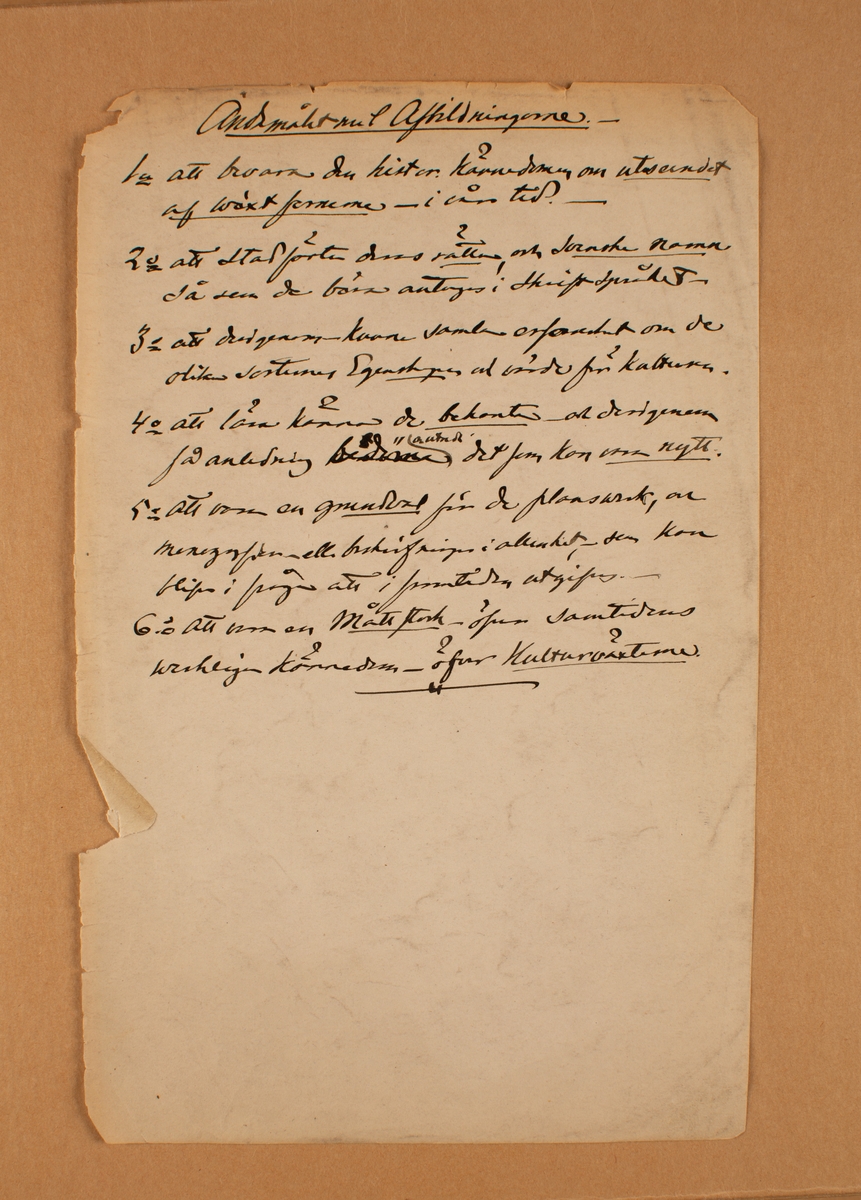 Ändamålet med Afbildningarne. —
1o att bevara den histor. kännedomen om utseendet
af växtformerne — i vår tid. —
2o att stadfästa deras rätta, och Svenska namn
så som de böra antages i skriftspråket —
3o att derigenom kunna samla erfarenhet om de
olika sorternes Egenskaper och värde för kulturen.
4o att lära känna de bekanta — och derigenom
få anledning det som kan vara nytt.
5o att vara en grundval för de planschverk, och
monografier — eller beskrifningar i allmänhet, — som kan
blifva i fråga att i framtiden utgifva. —
6o att vara en Måttstock — öfver samtidens
verkliga kännedom — öfver Kulturväxterne.